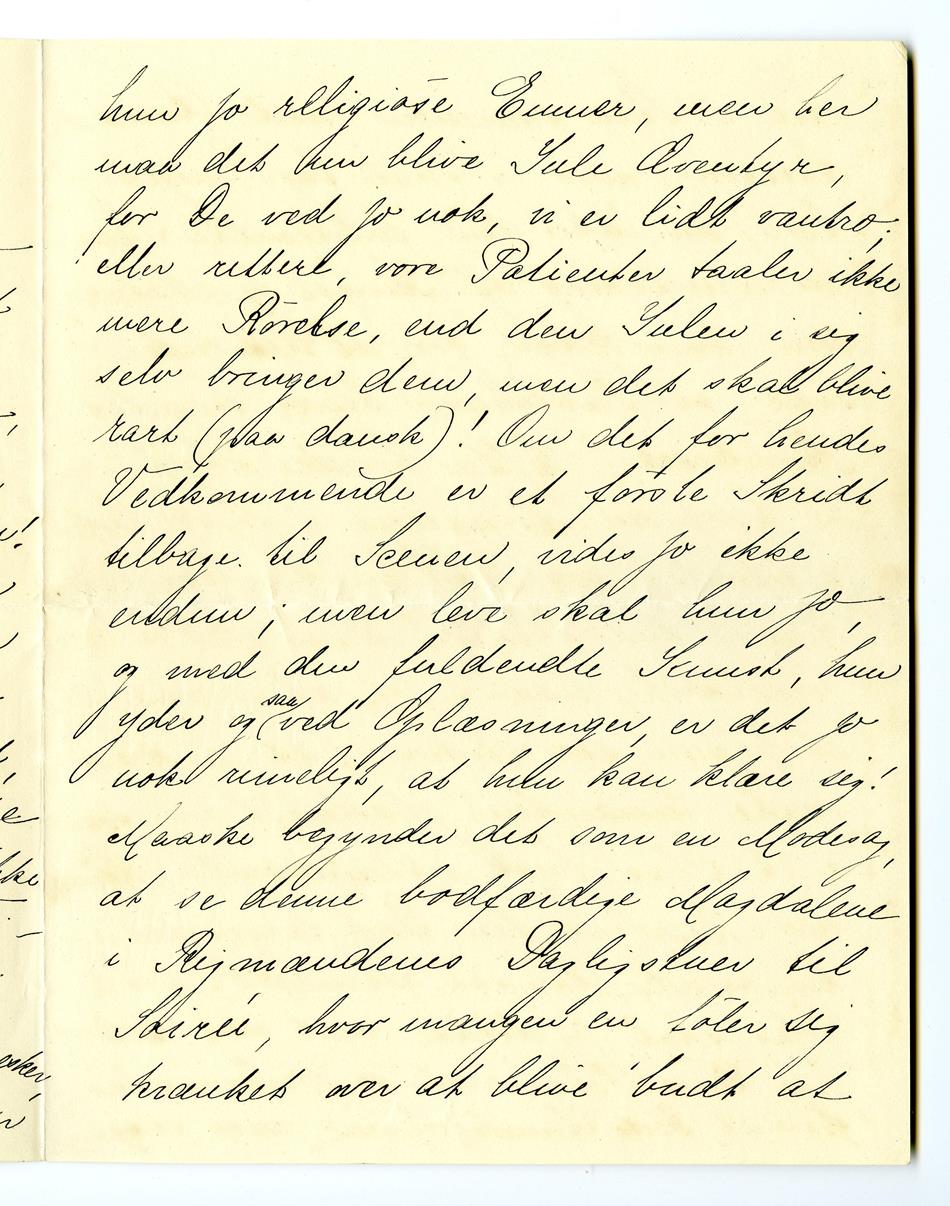 hun jo religiöse Emner, men her
maa det nu blive Jule Æventyr,
for De ved jo nok, vi er lidt vantro;
eller rettere, vore Patienter taaler ikke
mere Rörelse, end den Julen i sig
selv bringer dem, men det skal blive
rart (paa dansk)! Om det for hendes
Vedkommende er et förste Skridt
tilbage til Scenen, vides jo ikke
endnu; men leve skal hun jo,
og med den fuldendte Kunst, hun
yder og saa ved Oplæsninger, er det jo
nok rimeligt, at hun kan klare sig!
Maaske begynder det som en Modesag,
at se denne bodfærdige Magdalene
i Rigmændenes Dagligstuer til
Soiréé, hvor mangen en föler sig
krænket over at blive budt at